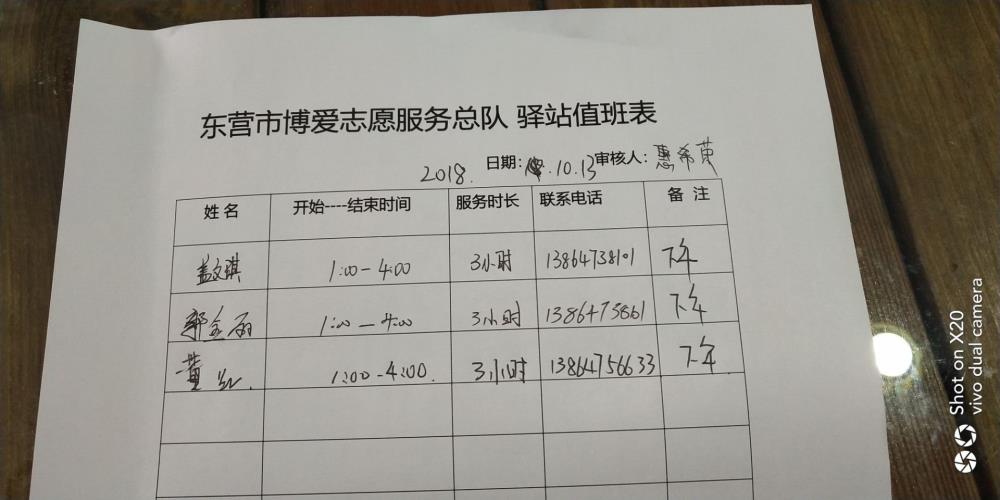 东营市博爱志愿服务总队 驿站值班表
2018. 日期: .10.13 审核人: 惠希荣
姓名 开始----结束时间 服务时长 联系电话 备 注
盖文琪 1:00-4:00 3小时 13864738101 下午
郭金 1:00-4:00 3小时 下午
黄 1:00-4:00. 3小时 13864756633 下午.
Shot on X20
vivo dual camera